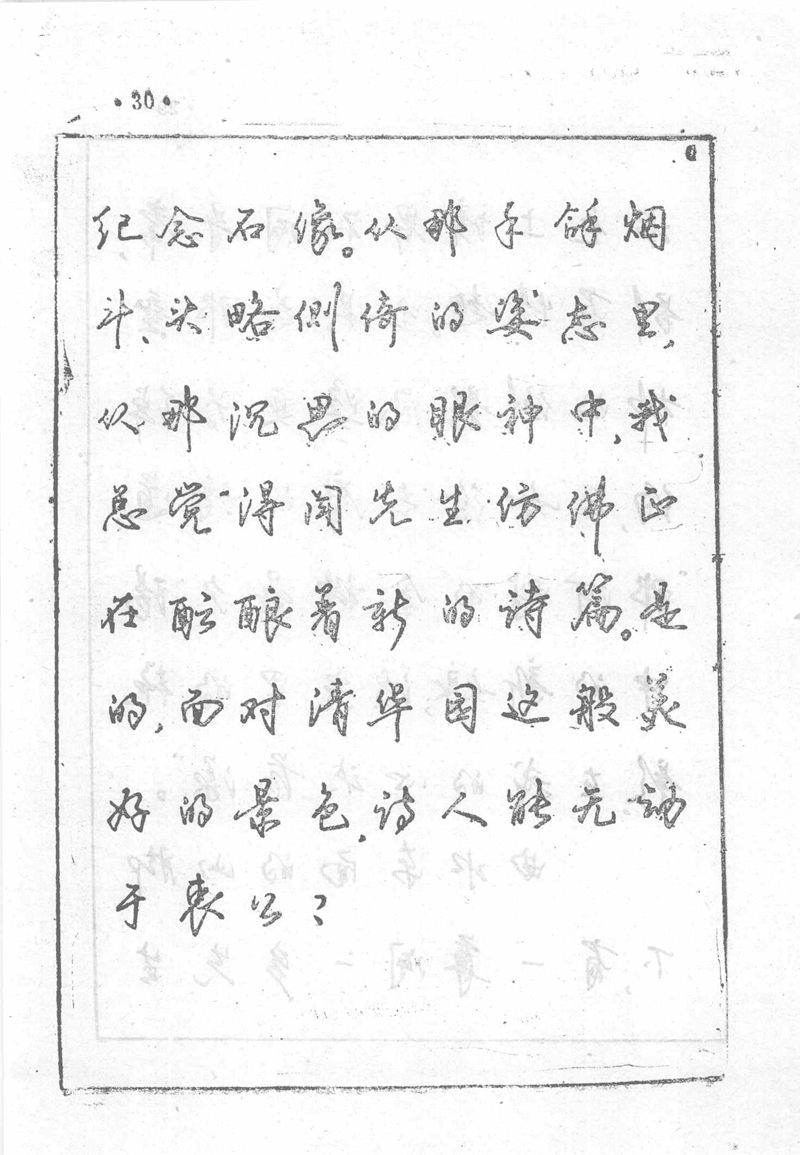 ·30·
纪念石像。从那手斜烟
斗、头略侧倚的姿态里,
从那沉思的眼神中,我
总觉得闻先生仿佛正
在酝酿着新的诗篇。是
的,面对清华园这般美
好的景色,诗人能无动
于衷么?